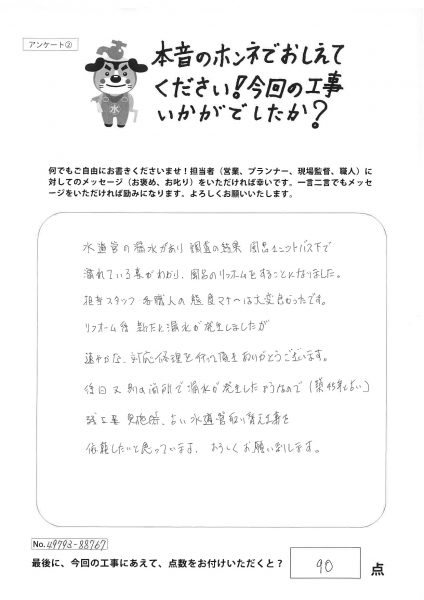 アンケート②
本音のホンネでおしえて
ください!今回の工事
いかがでしたか?
何でもご自由にお書きくださいませ!担当者(営業、プランナー、現場監督、職人)に
対してのメッセージ(お褒め、お叱り)をいただければ幸いです。一言二言でもメッセ
ージをいただければ励みになります。よろしくお願いいたします。
水道管の漏水があり 調査の結果 風呂ユニットバス下で
漏れている事がわかり、風呂のリフォームをすることになりました。
担当スタッフ 各職人の態度マナーは大変良かったです。
リフォーム後 新たに漏水が発生しましたが
速やかな、対応修理を行って頂きありがとうございます。
後日又別の箇所で漏水が発生したようなので(築45年と古い)
工事 実施時、古い水道管取り替え工事を
依頼したいと思っています。よろしくお願い致します。
No. 49793-88767
最後に、今回の工事にあえて、点数をお付けいただくと? 90 点